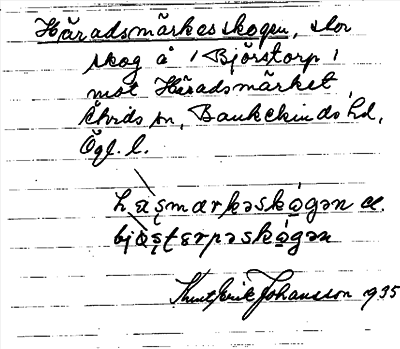 Häradsmärkesskogen, stor
skog å / Björstorp /
mot Häradsmärket,
Åtvids sn, Bankekinds hd,
Ögl. l.
hæṣmærkəskǫ́gən el.
bjǫṣtɛrpəskǫ́gən
Knut Erik Johansson 1935